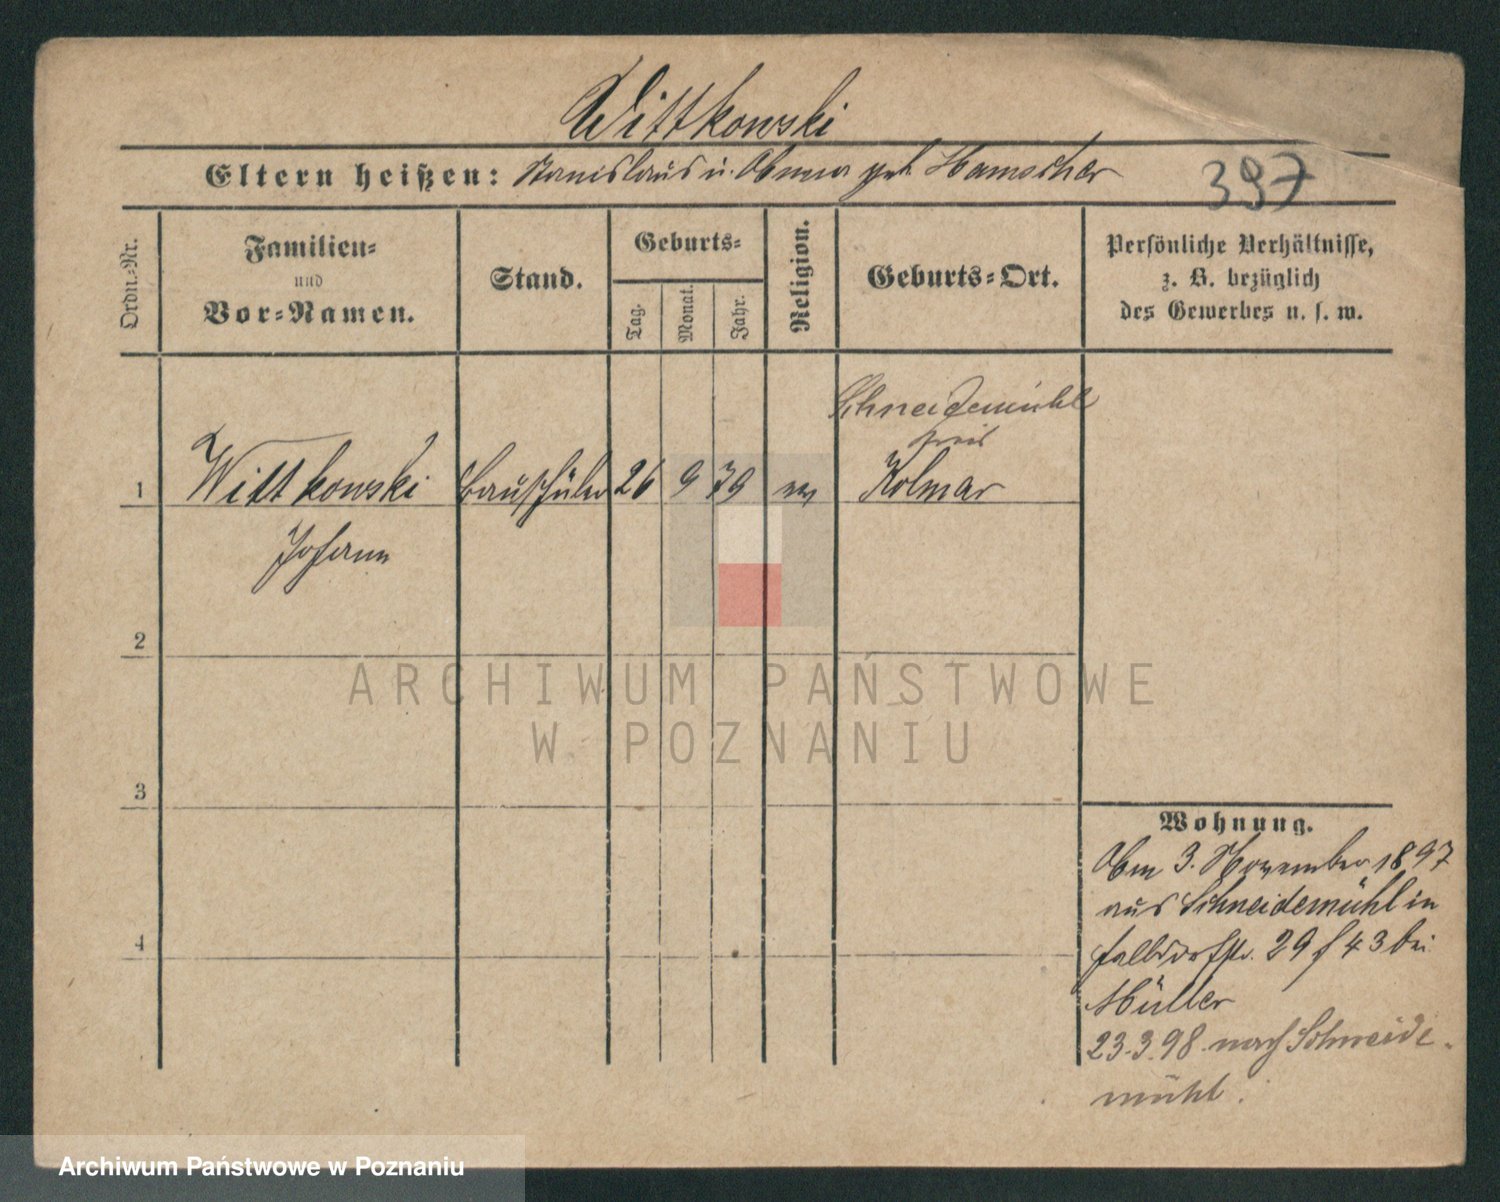 Wittkowski
Eltern heißen: Stanislaus u. Anna geb. Hamscher
397
Ordn.-Nr.
Familien-
und
Vor-Namen.
Stand.
Geburts-
Tag.
Monat.
Jahr.
Religion.
Geburts-Ort.
Persönliche Verhältnisse,
z. B. bezüglich
des Gewerbes u. s. w.
Schneidemühl
Kreis
1 Wittkowski Bauschüler 26 9 79 Kolmar
Johann
2
ARCHIWUM PAŃSTWOWE
W POZNANIU
3
Wohnung.
Am 3. November 1897
aus Schneidemühl in
29 f 43 bei
Müller
4
23.3.98 nach Schneide-
mühl.
Archiwum Państwowe w Poznaniu